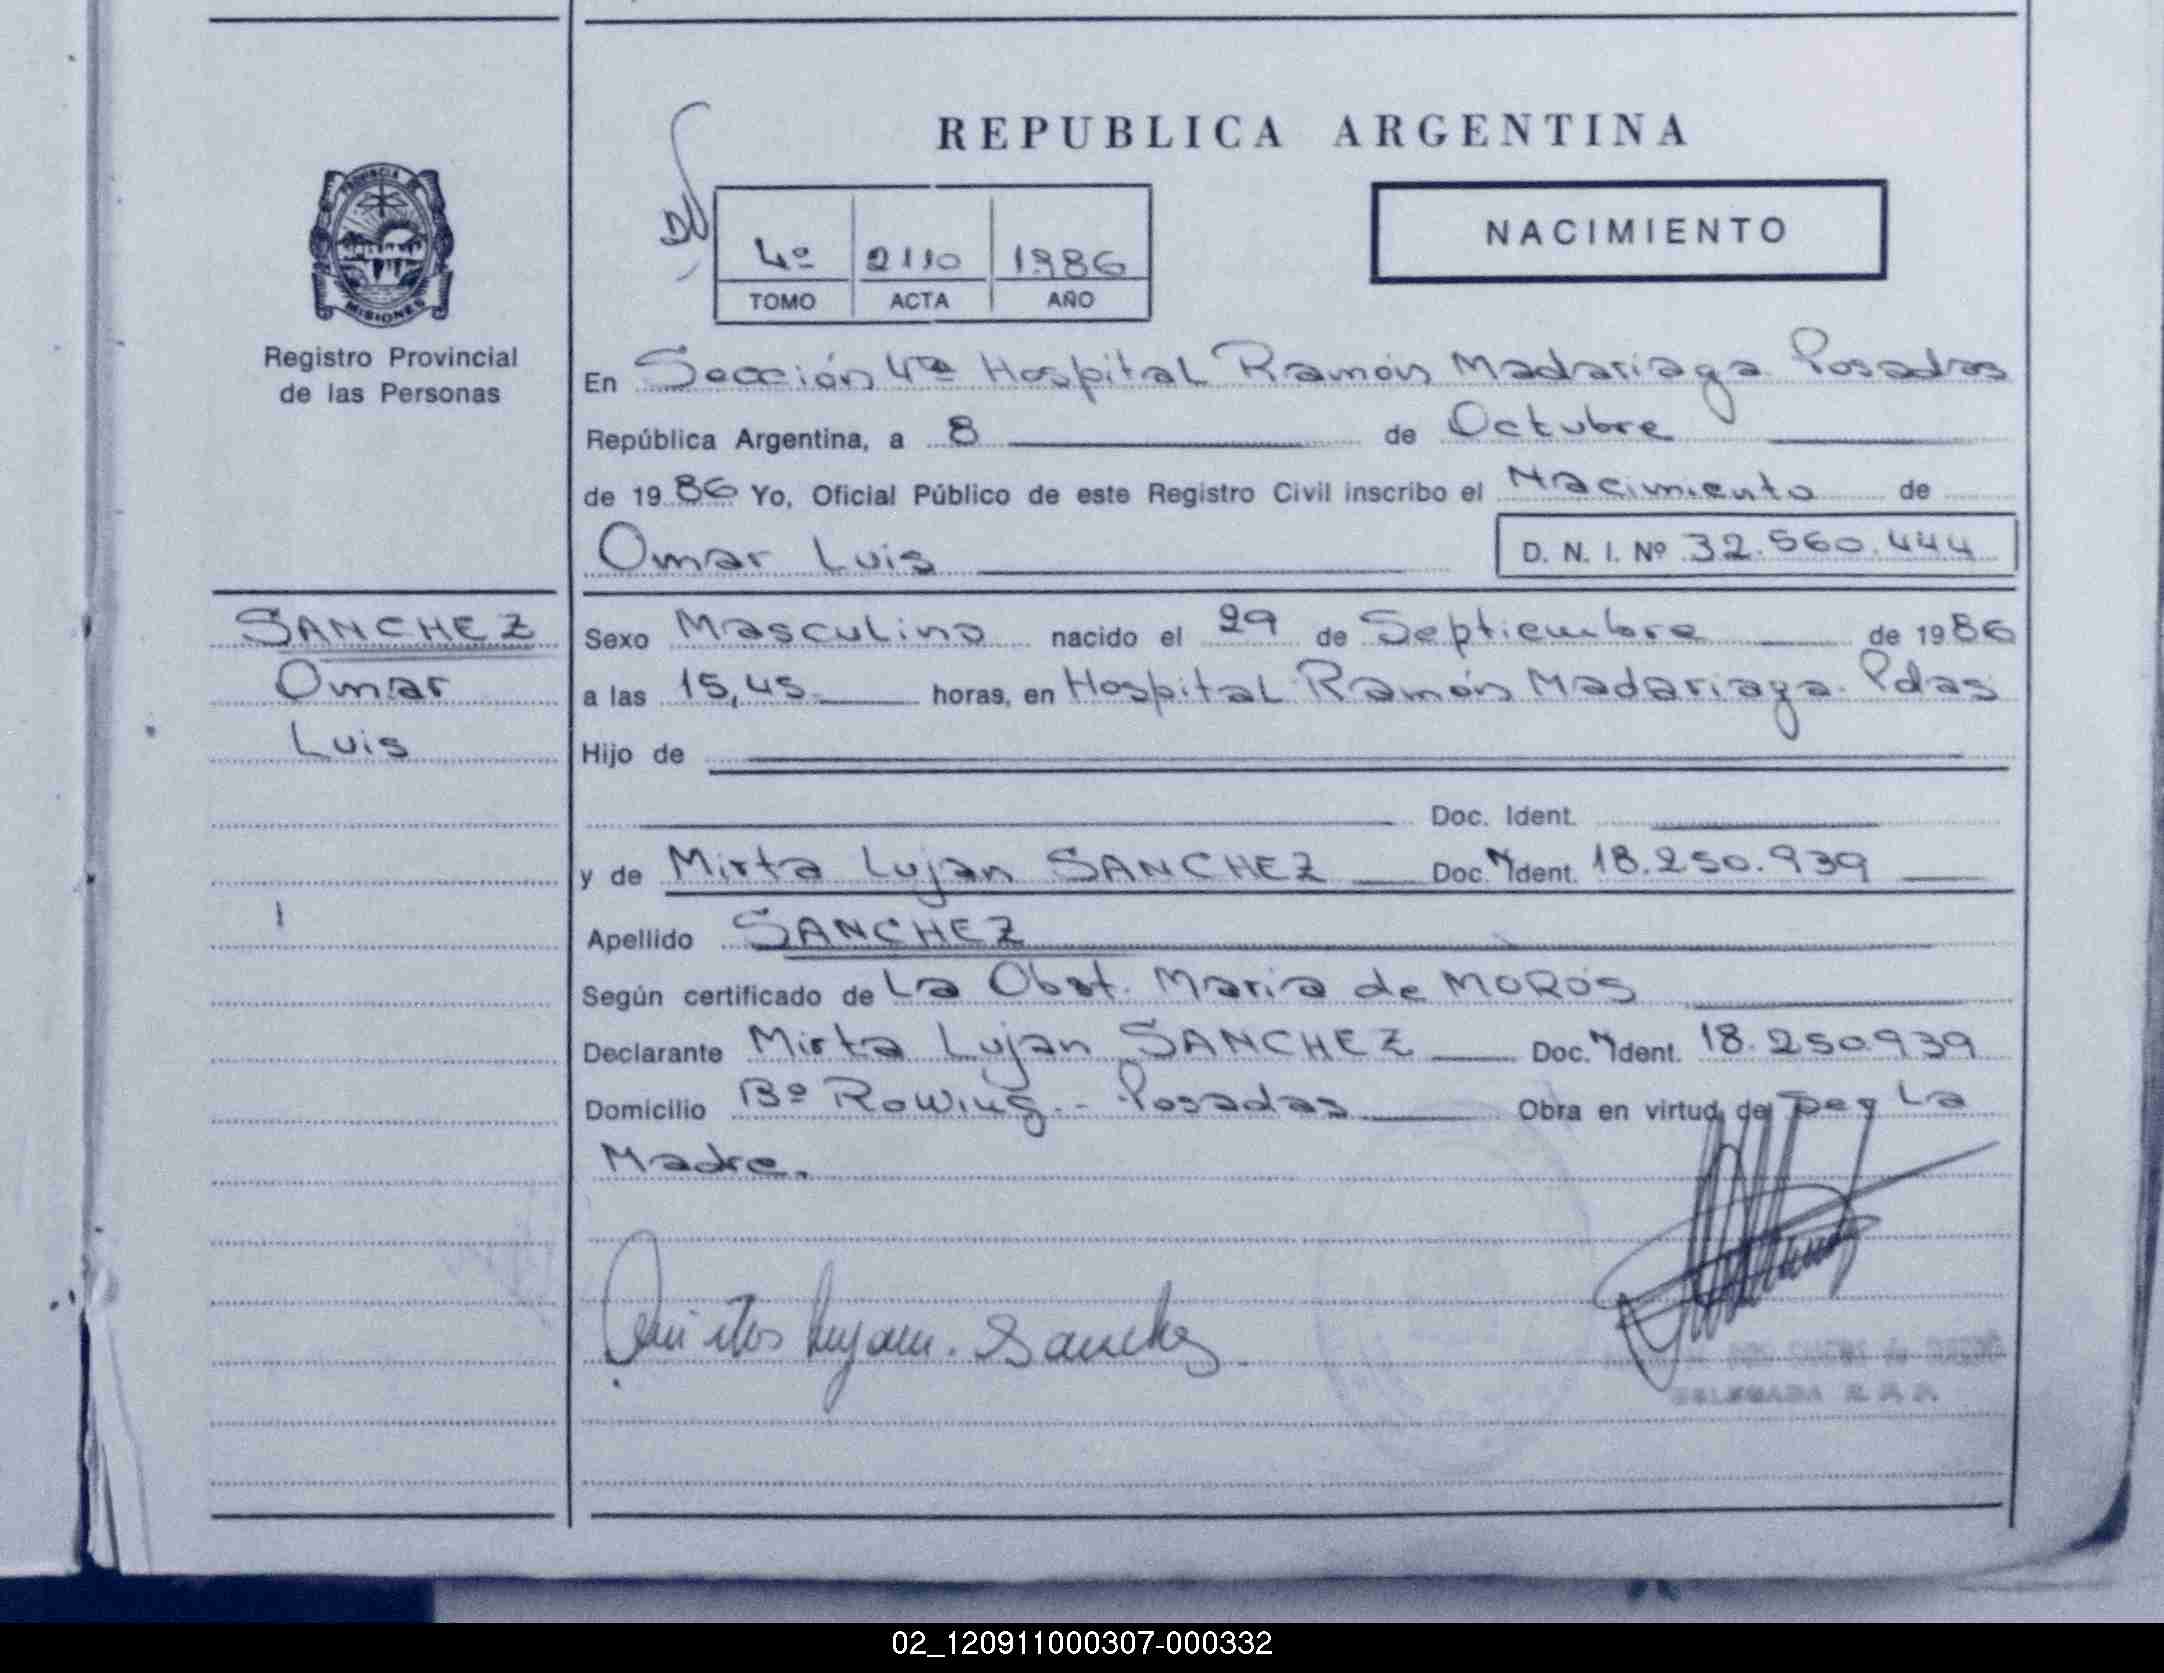 REPUBLICA ARGENTINA
PROVINCIA DE
MISIONES
Registro Provincial
de las Personas
4º 2110 1986
TOMO ACTA AÑO
NACIMIENTO
En Sección 4ª Hospital Ramón Madariaga Posadas
República Argentina, a 8 de Octubre
de 1986 Yo, Oficial Público de este Registro Civil inscribo el Nacimiento de
Omar Luis D. N. I. Nº 32.560.444
SANCHEZ
Omar
Luis
Sexo Masculino nacido el 29 de Septiembre de 1986
a las 15,45 horas, en Hospital Ramón Madariaga. Pdas
Hijo de
Doc. Ident.
y de Mirta Lujan SANCHEZ Doc. Ident. 18.250.939
Apellido SANCHEZ
Según certificado de La Obst. Maria de MOROS
Declarante Mirta Lujan SANCHEZ Doc. Ident. 18.250.939
Domicilio Bº Rowing - Posadas Obra en virtud de La
Madre.
Lujan. Sanchez
DELEGADA R. P. P.
02_120911000307-000332